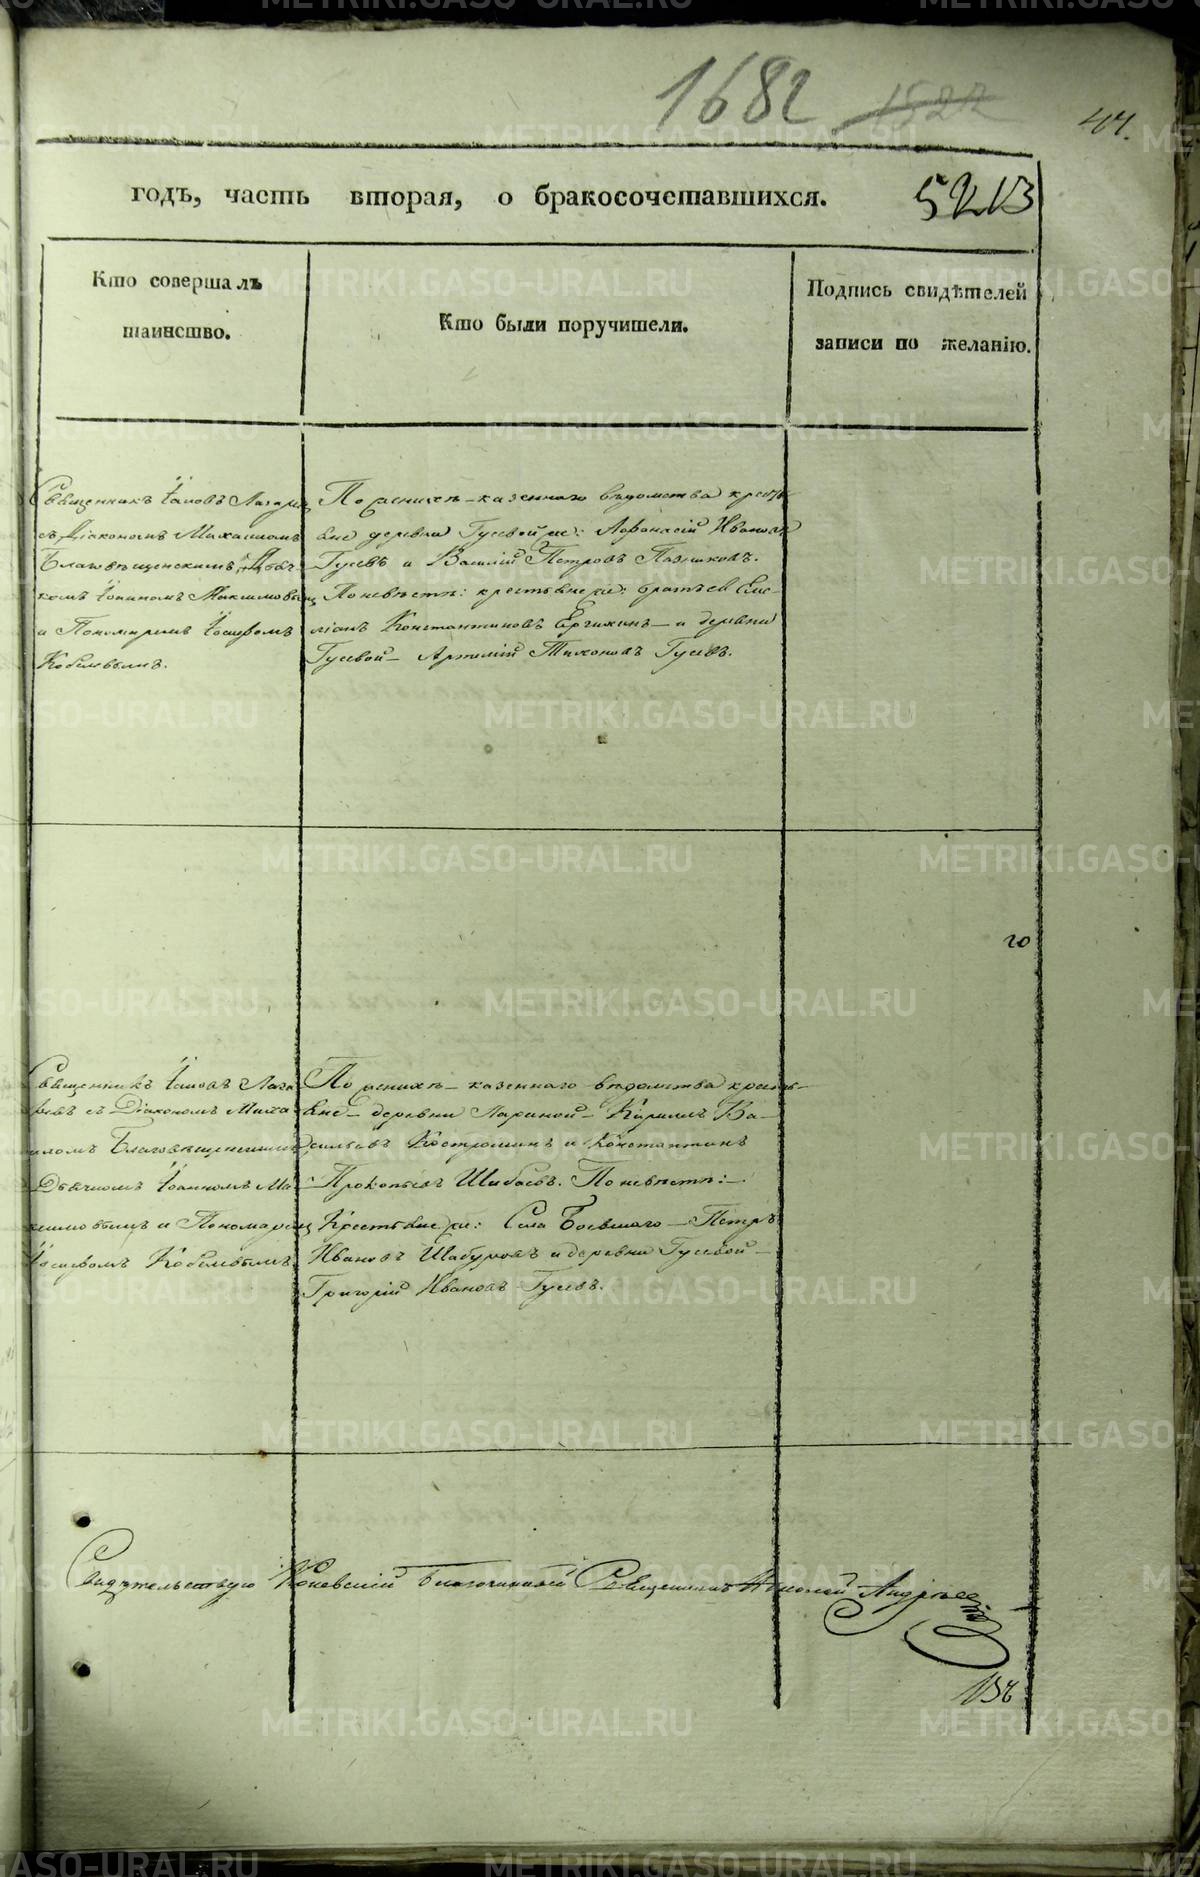 1682 1522 44.
годъ, часть вторая, о бракосочетавшихся. 5213
Кто совершалъ
таинство.
Кто были поручители.
Подпись свидѣтелей
записи по желанію.
Священникъ Іаковъ Лазаревъ
съ Діакономъ Михаиломъ
Благовѣщенскимъ
Іоанномъ Максимовымъ
и Пономаремъ Іосифомъ
Кобелевымъ.
По женихѣ – казеннаго вѣдомства кресть-
яне деревни Гусевой же: Афанасій Ивановъ
Гусевъ и Василій Петровъ Пазниковъ.
По невѣстѣ: крестьяне же: Еме-
ліанъ Константиновъ и деревни
Гусевой – Артемій Тихоновъ Гусевъ.
20
Священникъ Іаковъ Лаза-
ревъ съ Діакономъ Миха-
иломъ Благовѣщенскимъ
Дьячкомъ Іоанномъ Ма-
ксимовымъ и Пономаремъ
Іосифомъ Кобелевымъ.
По женихѣ – казеннаго вѣдомства кресть-
яне – деревни Лариной – Кирилъ Ва-
сильевъ Костроминъ и Константинъ
Прокопьевъ Шибаевъ. По невѣстѣ: –
Крестьяне же: Села Боевскаго – Петръ
Ивановъ Шабуровъ и деревни Гусевой –
Григорій Ивановъ Гусевъ.
Свидѣтельствую Коневскій Благочинный Священникъ Николай Андреевъ